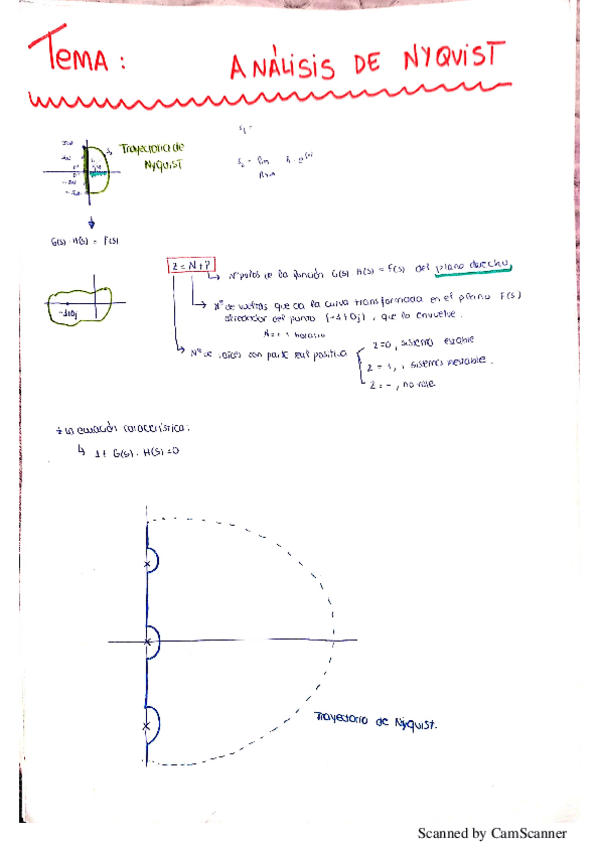 TEMA: ANÁLISIS DE NYQUIST
Trayectoria de
NYQUIST
G(s) · H(s) = F(s)
Z = N + P
Nº polos de la función G(s) H(s) = F(s) del plano derecho,
-1+0j
Nº de vueltas que da la curva transformada en el plano F(s)
alrededor del punto (-1+0j), que lo envuelve.
horario
Nº de raíces con parte real positiva
Z=0, sistema estable
Z=1, sistema inestable.
Z=-, no vale
la ecuación característica:
1+ G(s) · H(s)=0
Trayectoria de Nyquist.
Scanned by CamScanner